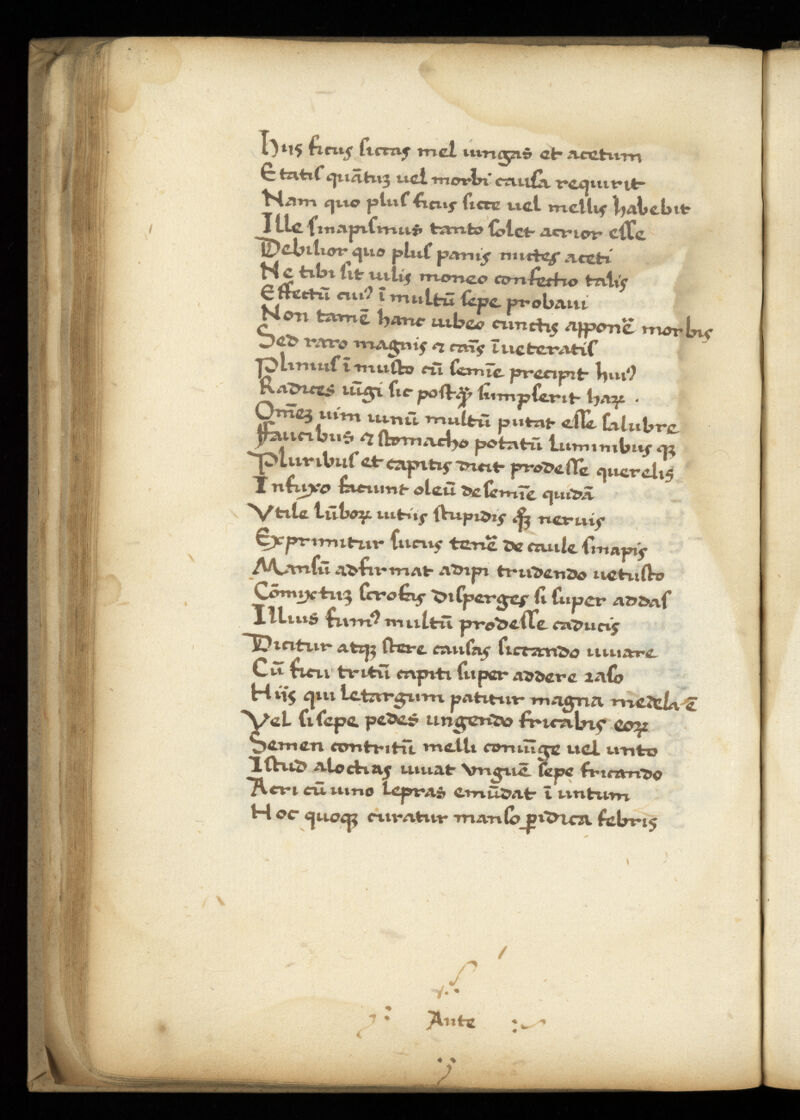 Hiis ficus siccas mel iungas et acetum
Etatis quātuʒ uel morbi causa requirit
Nam quo plus ficus sicce uel mellis habebit
Ille sinapismus tanto solet acrior esse
Debilior quo plus panis mictes aceti
Ne tibi sit uilis moneo confectio talis
Effectū cui⁹ ī multū sepe probaui
Non tamē hanc iubeo cunctis apponē morbis
Sed raro magnis ⁊ cāis īueteratis
Plinius ī musto cū semīe precipit hui⁹
Radices iūgi sic postꝙ sumpserit haꝝ .
Omēʒ uim uinū multū putat esse salubre
Faucibus ⁊ stomacho potatū luminibus qʒ
Pluribus et capitis dicit prodesse querelis
Infuxo faciunt oleū de semīe quidā
Vtile lūboꝝ uitiis stupidis qʒ neruis
Exprimitur sucus tenē de caule sinapis
Mansū adfirmat adipi trudendo uetusto
Cōmixtuʒ scrofis disperges si super addas
Illius fum⁹ multū prodesse caducis
Dicitur atqʒ stere causas siccando iuuare
Cū ficu tritū capiti super addere raso
Hiis qui letargum patitur magna medela ē
Vel si sepe pedes ungendo fricabis eoꝝ
Semen contritū melli coniūge uel unto
Istud alochias iuuat vnguē sepe fricando
Acri cū uino lepras emūdat ī untum
Hoc quoqʒ curatur manso ꝑidica febris
Ante